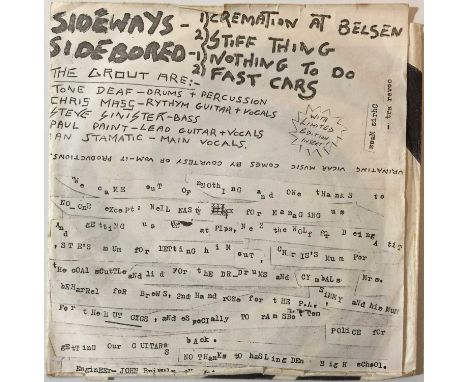 SIDEWAYS - 1) CREMATION AT BELSEN
2) STIFF THING
SIDEBORED - 1) NOTHING TO DO
2) FAST CARS
THE GROUT ARE:-
TONE DEAF - DRUMS + PERCUSSION
CHRIS MASC - RYTHYM GUITAR + VOCALS
STEVE SINISTER - BASS
PAUL PAINT - LEAD GUITAR + VOCALS
IAN STAMATIC - MAIN VOCALS.
WITH LIMITED EDITION INSERT!
- tra revoc
Chris Weak
URINATING VICAR MUSIC COMES BY COURTESY OF VOM-IT PRODUCTIONS.
We cAME out OF NOTHING and OWe tHANKS to
NO_ONE except: Nell NAStY for MANAGING us
And gETtiNG us at PIpS, NeZ the WOLf for Being A tit
, STE'S mum for LETTiNg hiM out, CHRIS'S Mum For
tHe COAL sCUTTLe aNd lid FOr tHe DR_DrUMS aNd CYmbALS Mrs.
bEHArReL foR BroWS, 2nd HaNd rOSe for tHE P.A., SINNY and his MuM
For tHe HUT GIGS, aNd eSpeCiaLLy TO rAmSBoTTen POLiCe for
gETTiNg Our GUITARS back.
NO THANKs to hASLiNgDEN HigH scHOOl.
Engineer- JOHN